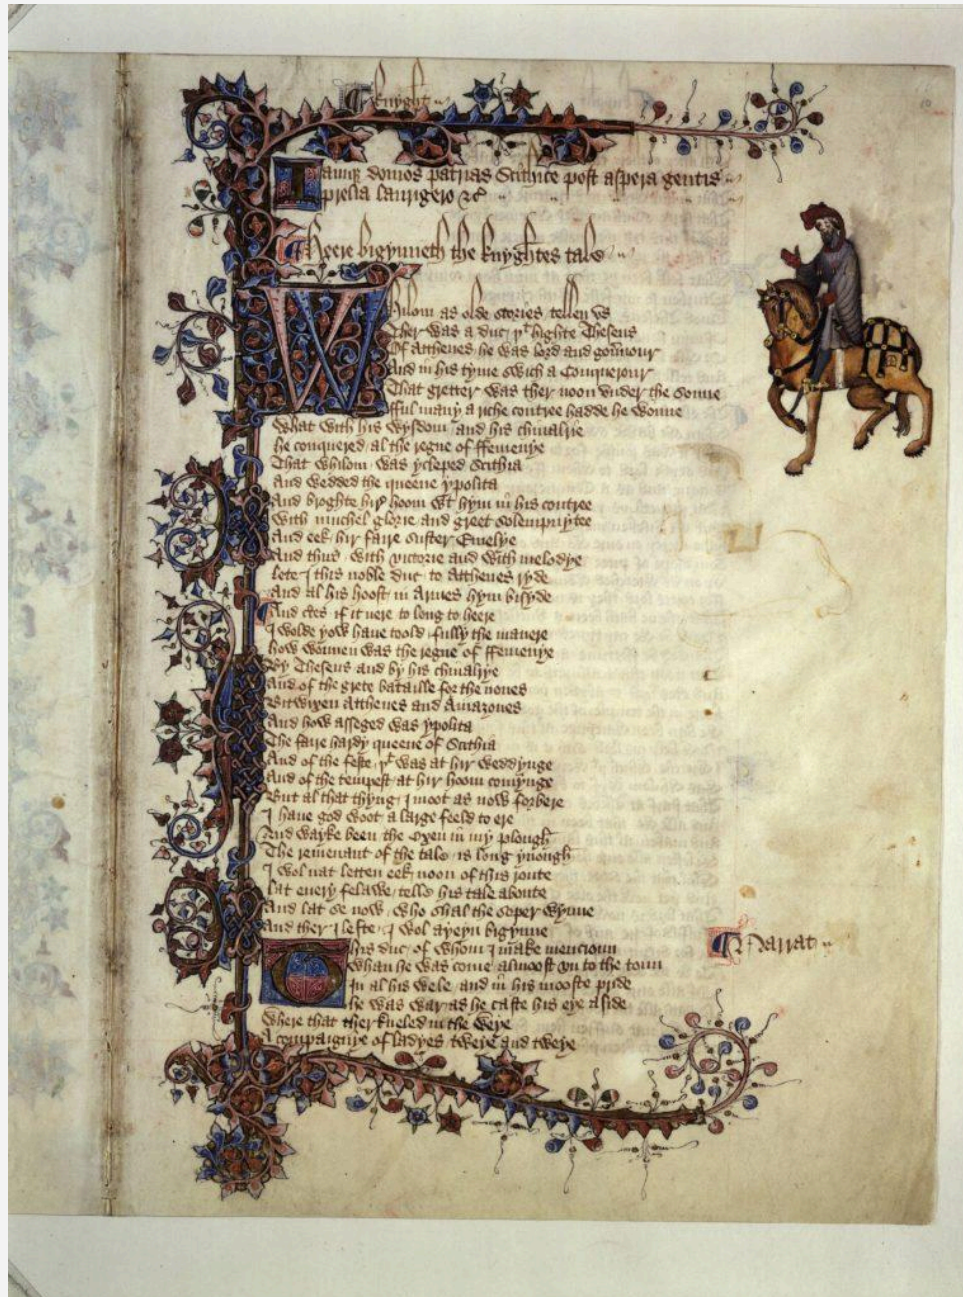 Knyght
Iamque domos patrias Scithice post aspera gentis
prelia laurigero &c
Heere bigynneth the knyghtes tale
Whilom as olde stories tellen vs
Ther was a duc þt highte Theseus
Of Atthenes he was lord and gouernour
And in his tyme swich a Conquerour
That gretter was ther noon vnder the sonne
fful many a riche contree hadde he wonne
What with his wysdom and his chiualrie
he conquered al the regne of ffemenye
That whilom was ycleped Scithia
And wedded the queene ypolita
And broghte hire hoom wt hym in his contree
With muchel glorie and greet solempnytee
And eek hir faire suster Emelye
And thus with victorie and with melodye
lete I this noble duc to Atthenes ryde
And al his hoost in Armes hym bisyde
And certes if it nere to long to heere
I wolde yow haue toold fully the manere
how wonnen was the regne of ffemenye
By Theseus and by his chiualrye
And of the grete bataille for the nones
Bitwixen Atthenes and Amazones
And how asseged was ypolita
The faire hardy queene of Scithia
And of the feste þt was at hir weddynge
And of the tempest at hir hoom comynge
But al that thyng I moot as now forbere
I haue god woot a large feeld to ere
And wayke been the oxen in my plough
The remenant of the tale is long ynough
I wol nat letten eek noon of this route
lat euery felawe telle his tale aboute
And lat se now who shal the soper wynne
And ther I lefte I wol ayeyn bigynne
This duc of whom I make mencioun
Whan he was come almoost vn to the toun
In al his wele and in his mooste pride
he was war as he caste his eye aside
Where that ther kneled in the weye
A compaignye of ladyes tweye and tweye
Narrat